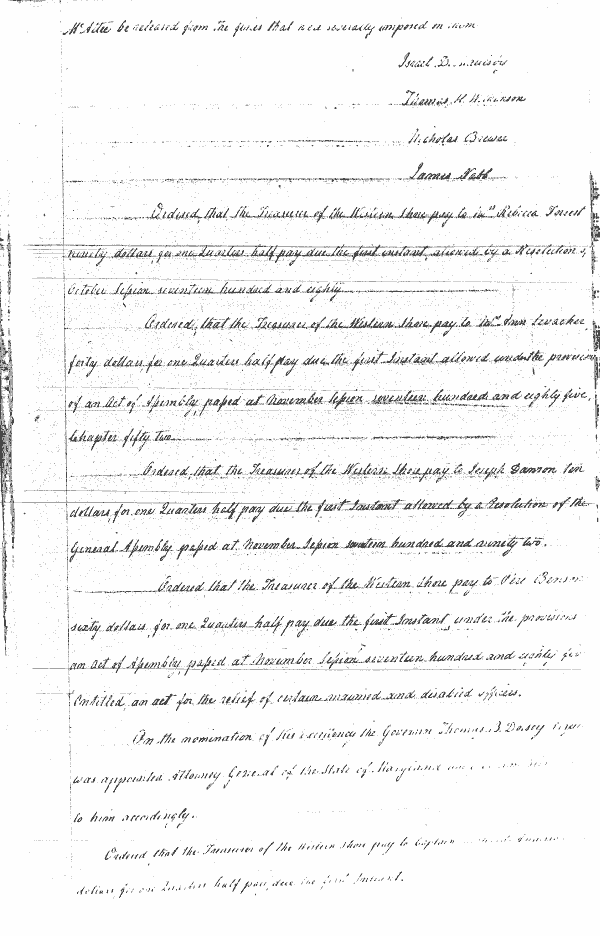 be released from the fines that were severally imposed on them
Israel D.
Thomas H. Wilkinson
Nicholas Brewer
James Nabb
Ordered, that the Treasurer of the Western Shore pay to Mrs Rebecca Forrest
ninety dollars, for one Quarters half pay due the first instant, allowed by a Resolution of
October Session seventeen hundred and eighty
Ordered, that the Treasurer of the Western Shore pay to Mrs Ann Levacher
forty dollars for one Quarters half pay due the first Instant allowed under the provision
of an Act of Assembly, passed at November Session seventeen hundred and eighty five,
Chapter fifty two
Ordered, that the Treasurer of the Western Shore pay to Joseph Dawson Ten
dollars, for one Quarters half pay due the first Instant allowed by a Resolution of the
General Assembly passed at November Session seventeen hundred and ninety two.
Ordered that the Treasurer of the Western Shore pay to Pere Benson
sixty dollars for one Quarters half pay due the first Instant, under the provisions
an act of Assembly, passed at November Session seventeen hundred and eighty
Entitled, an act for the relief of certain maimed and disabled officers.
On the nomination of his Excellency the Governor Thomas B. Dorsey
was appointed Attorney General of the State of Maryland
to him accordingly.
Ordered, that the Treasurer of the Western Shore pay to Captain
dollars for one Quarters half pay, due the first Instant.